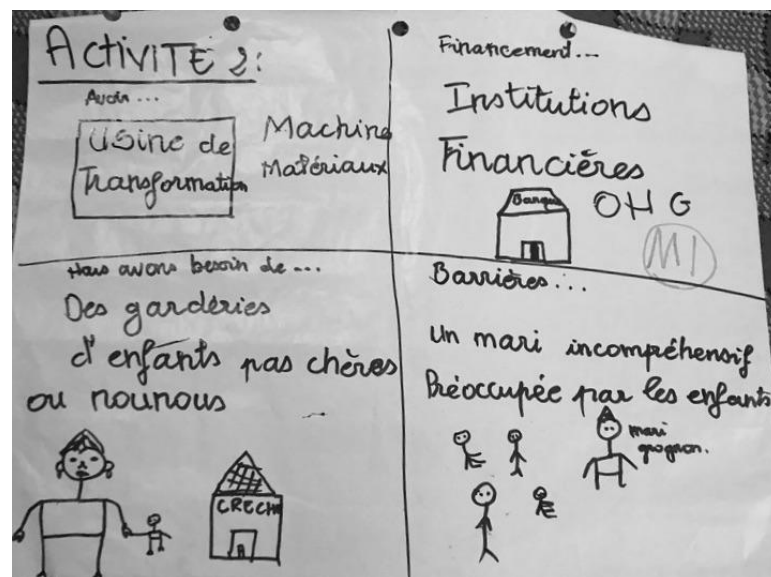 ACTIVITÉ 2:
Avoir ...
Usine de
Transformation
Machine
Matériaux
Financement...
Institutions
Financières
Banque
OHG
M1
Nous avons besoin de ...
Des garderies
d'enfants pas chères
ou nounous
CRECHE
Barrières...
Un mari incompréhensif
Préoccupée par les enfants
mari
grognon.